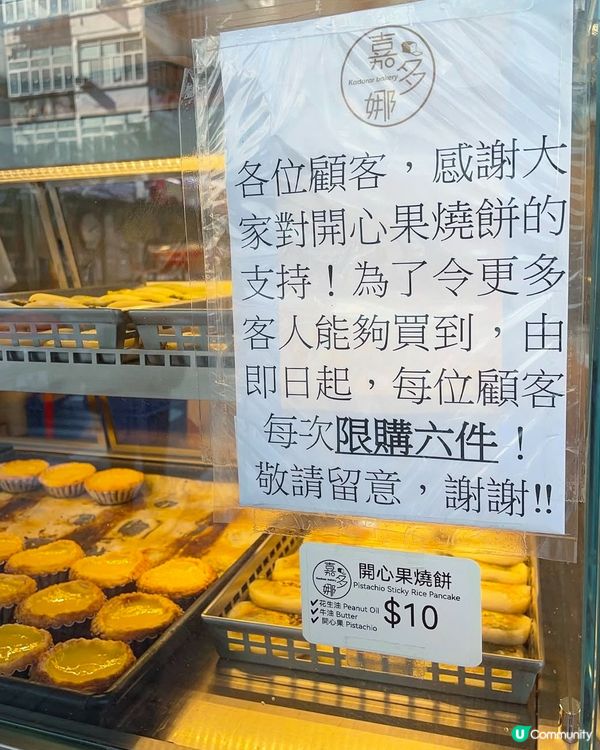 嘉多娜
Kadorar bakery
各位顧客，感謝大
家對開心果燒餅的
支持！為了令更多
客人能夠買到，由
即日起，每位顧客
每次限購六件！
敬請留意，謝謝!!
嘉多娜
開心果燒餅
Pistachio Sticky Rice Pancake
✔花生油 Peanut Oil
✔牛油 Butter
✔開心果 Pistachio
$10
U Community